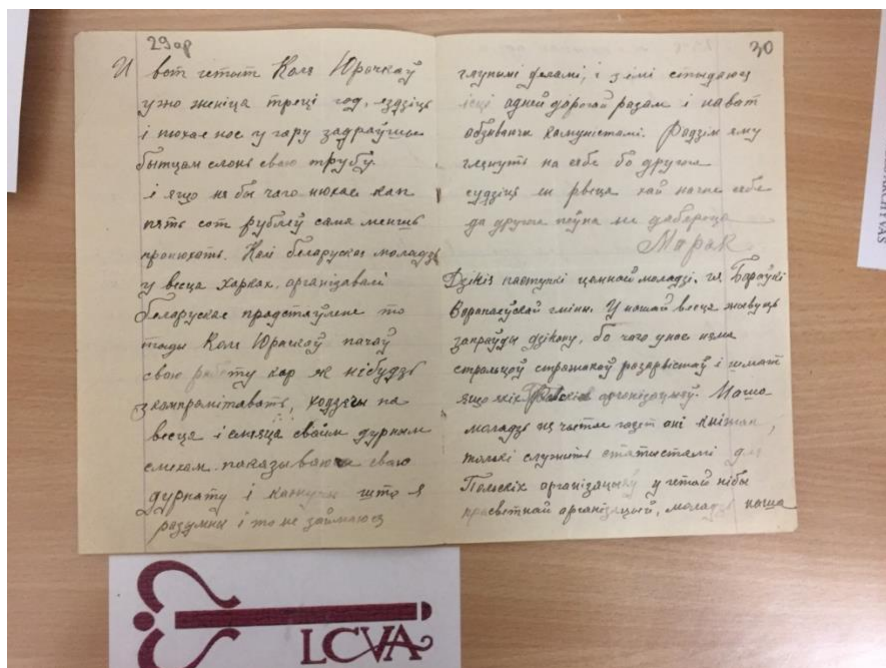 29ар
И вот гетыт Коля Юрочкаў
ужо жэніца трэці год, ездзіць
і нюхае нос у гару задраўшы
бытцам слонь сваю трубу.
і яшо ня бы чаго нюхае как
пять сот рублеў сама меньш
пронюхать. Калі беларуская моладзь
у весца Харках, организавалі
беларускае прадстаўлене то
тады Коля Юрачкаў пачаў
свою работу кор як нібудзь
зкомпромітавать, ходзячы па
весца і смяяца своім дурным
смехам паказываючы сваю
дурнату і кажучы што я
разумны і то не займаюсь
30
глупымі деламі, і з імі стыдаюсь
ісці адней дарогай разам і нават
абзываючы камуністамі. Радзім яму
глянуть на себе бо другога
судзіць ён рвеца хай начне себе
да другога пеўна не дабероца
Марак
Дзікія паступкі цемнай моладзі, Бараўкі
Воропаеўскай гміны. У нашай весца жывуць
запраўды дзікону, бо чаго унас нема
стральцоў стражакоў розарвістаў і шмат
яшо якіх організацыяў. Наша
моладзь ня чытае газет ані кніжак,
толькі служить статыстамі для
Польскіх організацыяў у гетай нібы
прасветнай організацыей, моладзь наша
LCVA